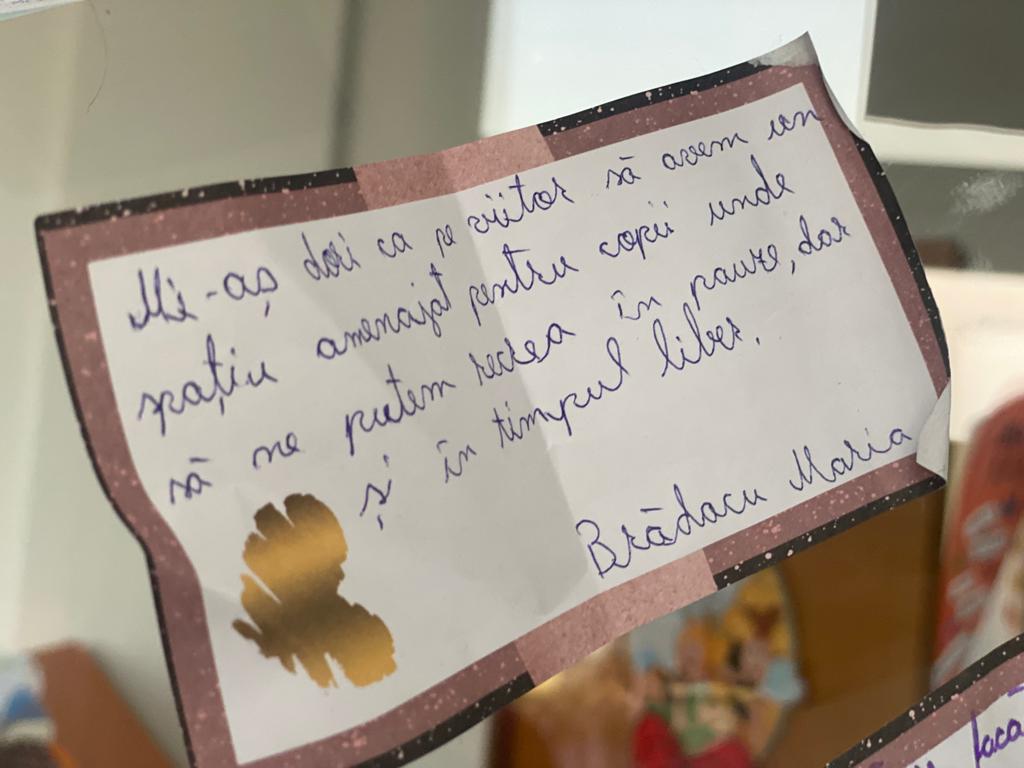 Mi-aș dori ca pe viitor să avem un
spațiu amenajat pentru copii unde
să ne putem recrea în pauze, dar
și în timpul liber.
Brădacu Maria
facă